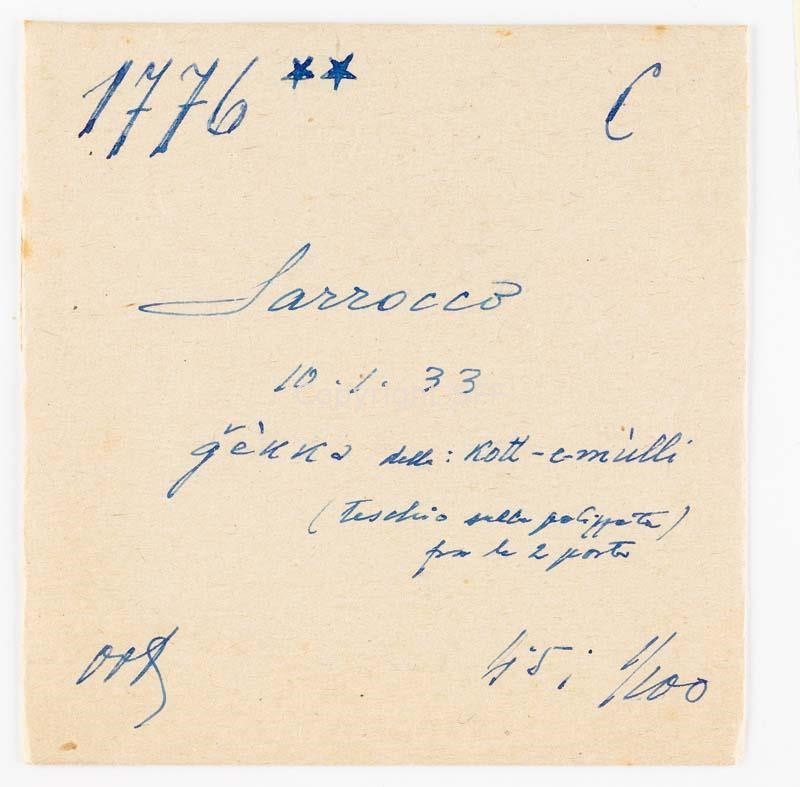 1776 ** C
Sarrocco
10.1.33
ğèkka della: Kott-e-mùlli
(teschio sulla palizzata)
fra le 2 porte
ort
4,5; 1/100